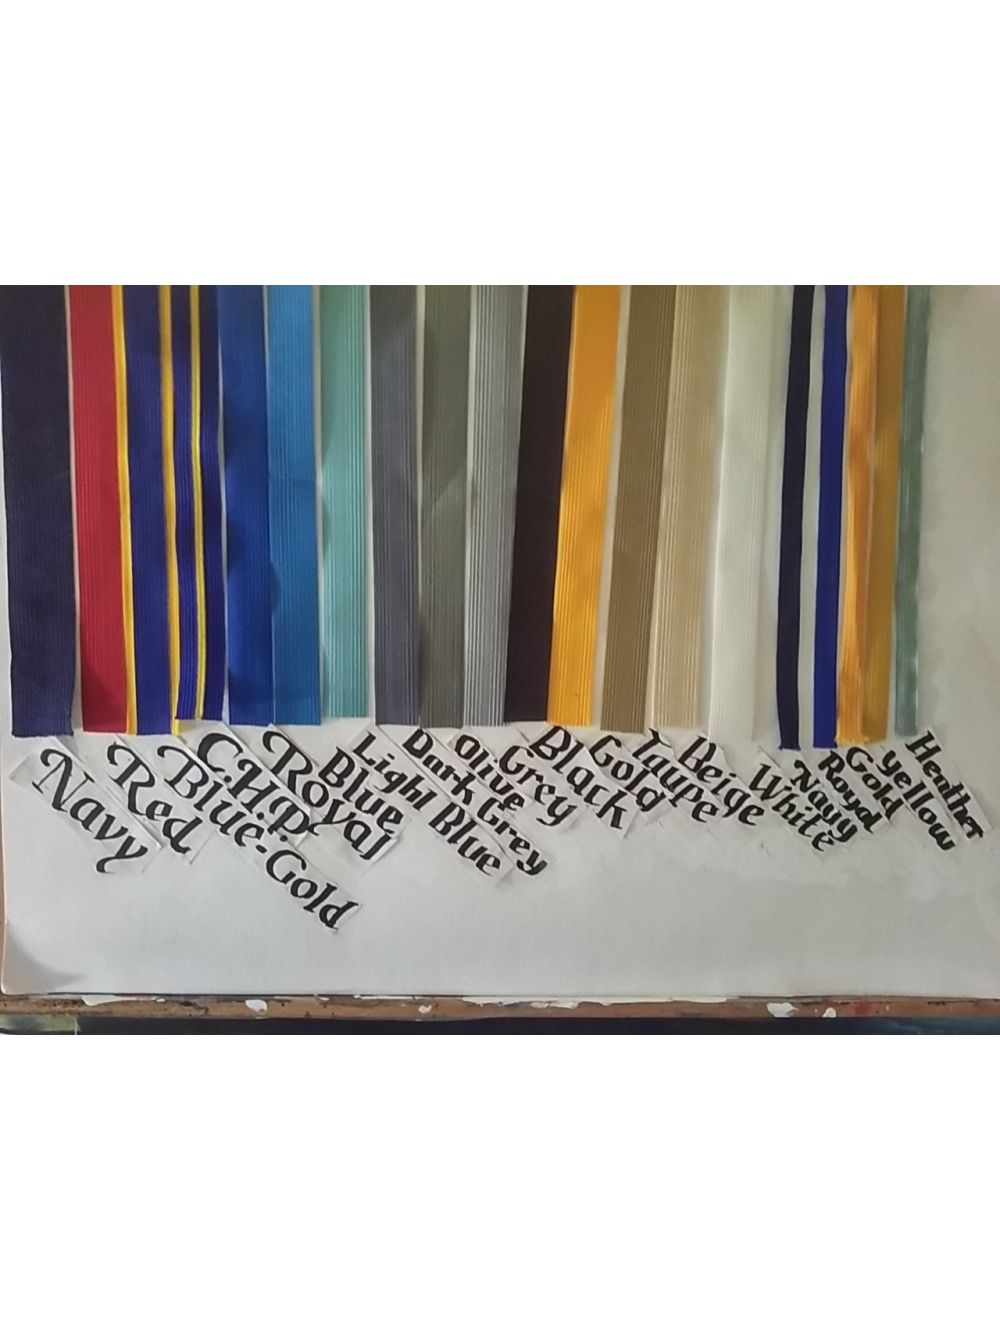 Navy
Red
Blue-Gold
C.H.P.
Royal
Blue
Light Blue
Dark Grey
Olive
Grey
Black
Gold
Taupe
Beige
White
Navy
Royal
Gold
Yellow
Heather